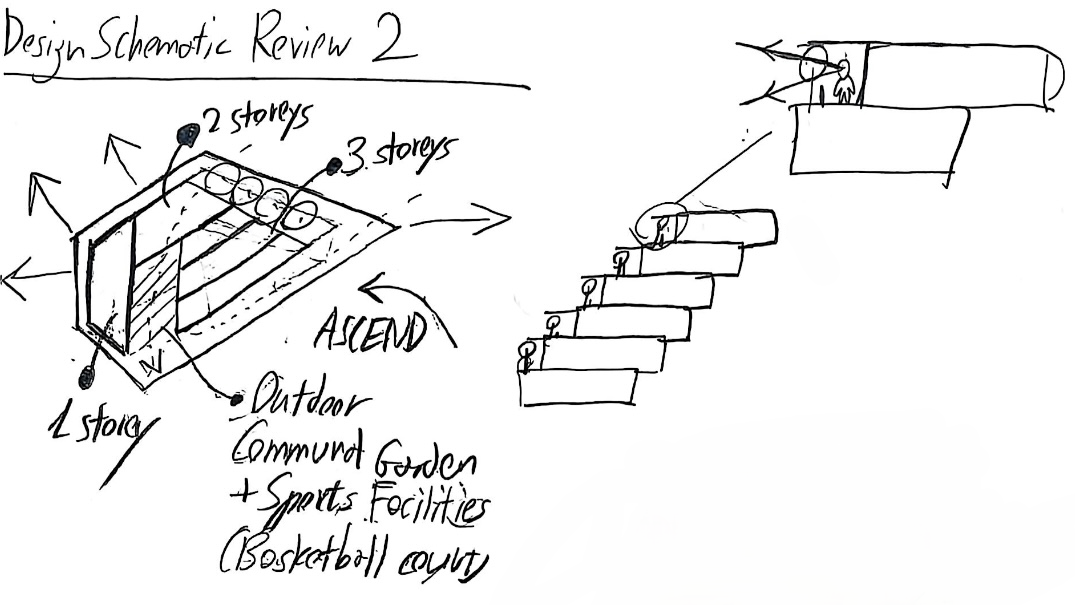 Design Schematic Review 2
2 storeys
3 storeys
ASCEND
1 storey
Outdoor
Communal Garden
+ Sports Facilities
(Basketball court)